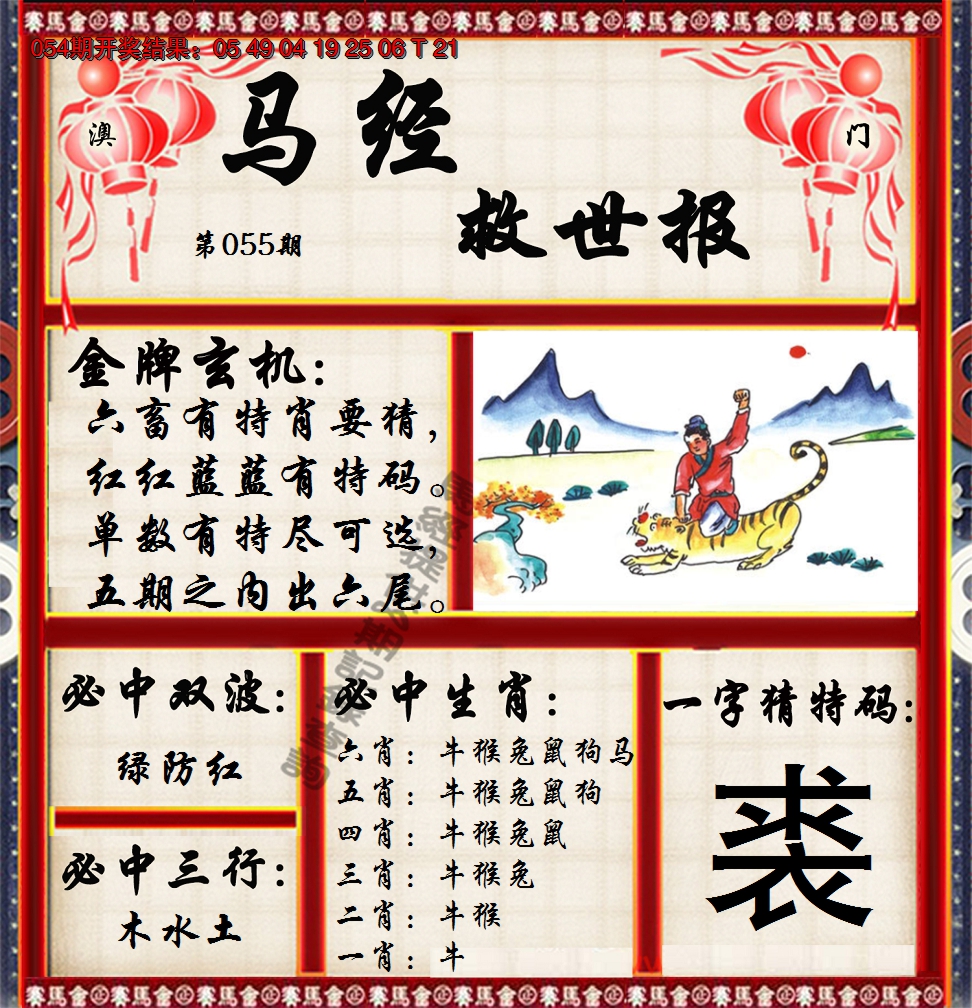 賽馬會
054期开奖结果：05 49 04 19 25 06 T 21
澳
门
马经
救世报
第055期
金牌玄机：
六畜有特肖要猜，
红红蓝蓝有特码。
单数有特尽可选，
五期之内出六尾。
必中双波：
绿防红
必中三行：
木水土
必中生肖：
六肖：牛猴兔鼠狗马
五肖：牛猴兔鼠狗
四肖：牛猴兔鼠
三肖：牛猴兔
二肖：牛猴
一肖：牛
一字猜特码：
裘